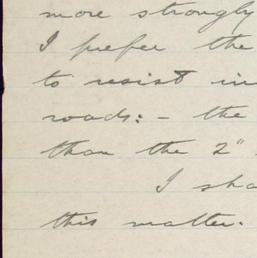 more strongly
I prefer the
to resist in
roads: - the
than the 2"
I sha
this matter.